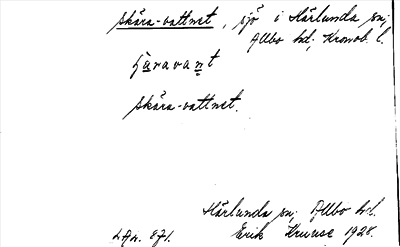 skära-vattnet, sjö i Härlunda sn;
Allbo hd; Kronob. l.
ɧaravaṇt
skära-vattnet.
Härlunda sn; Allbo hd.
LAn. 871. Erik Kruuse 1928.